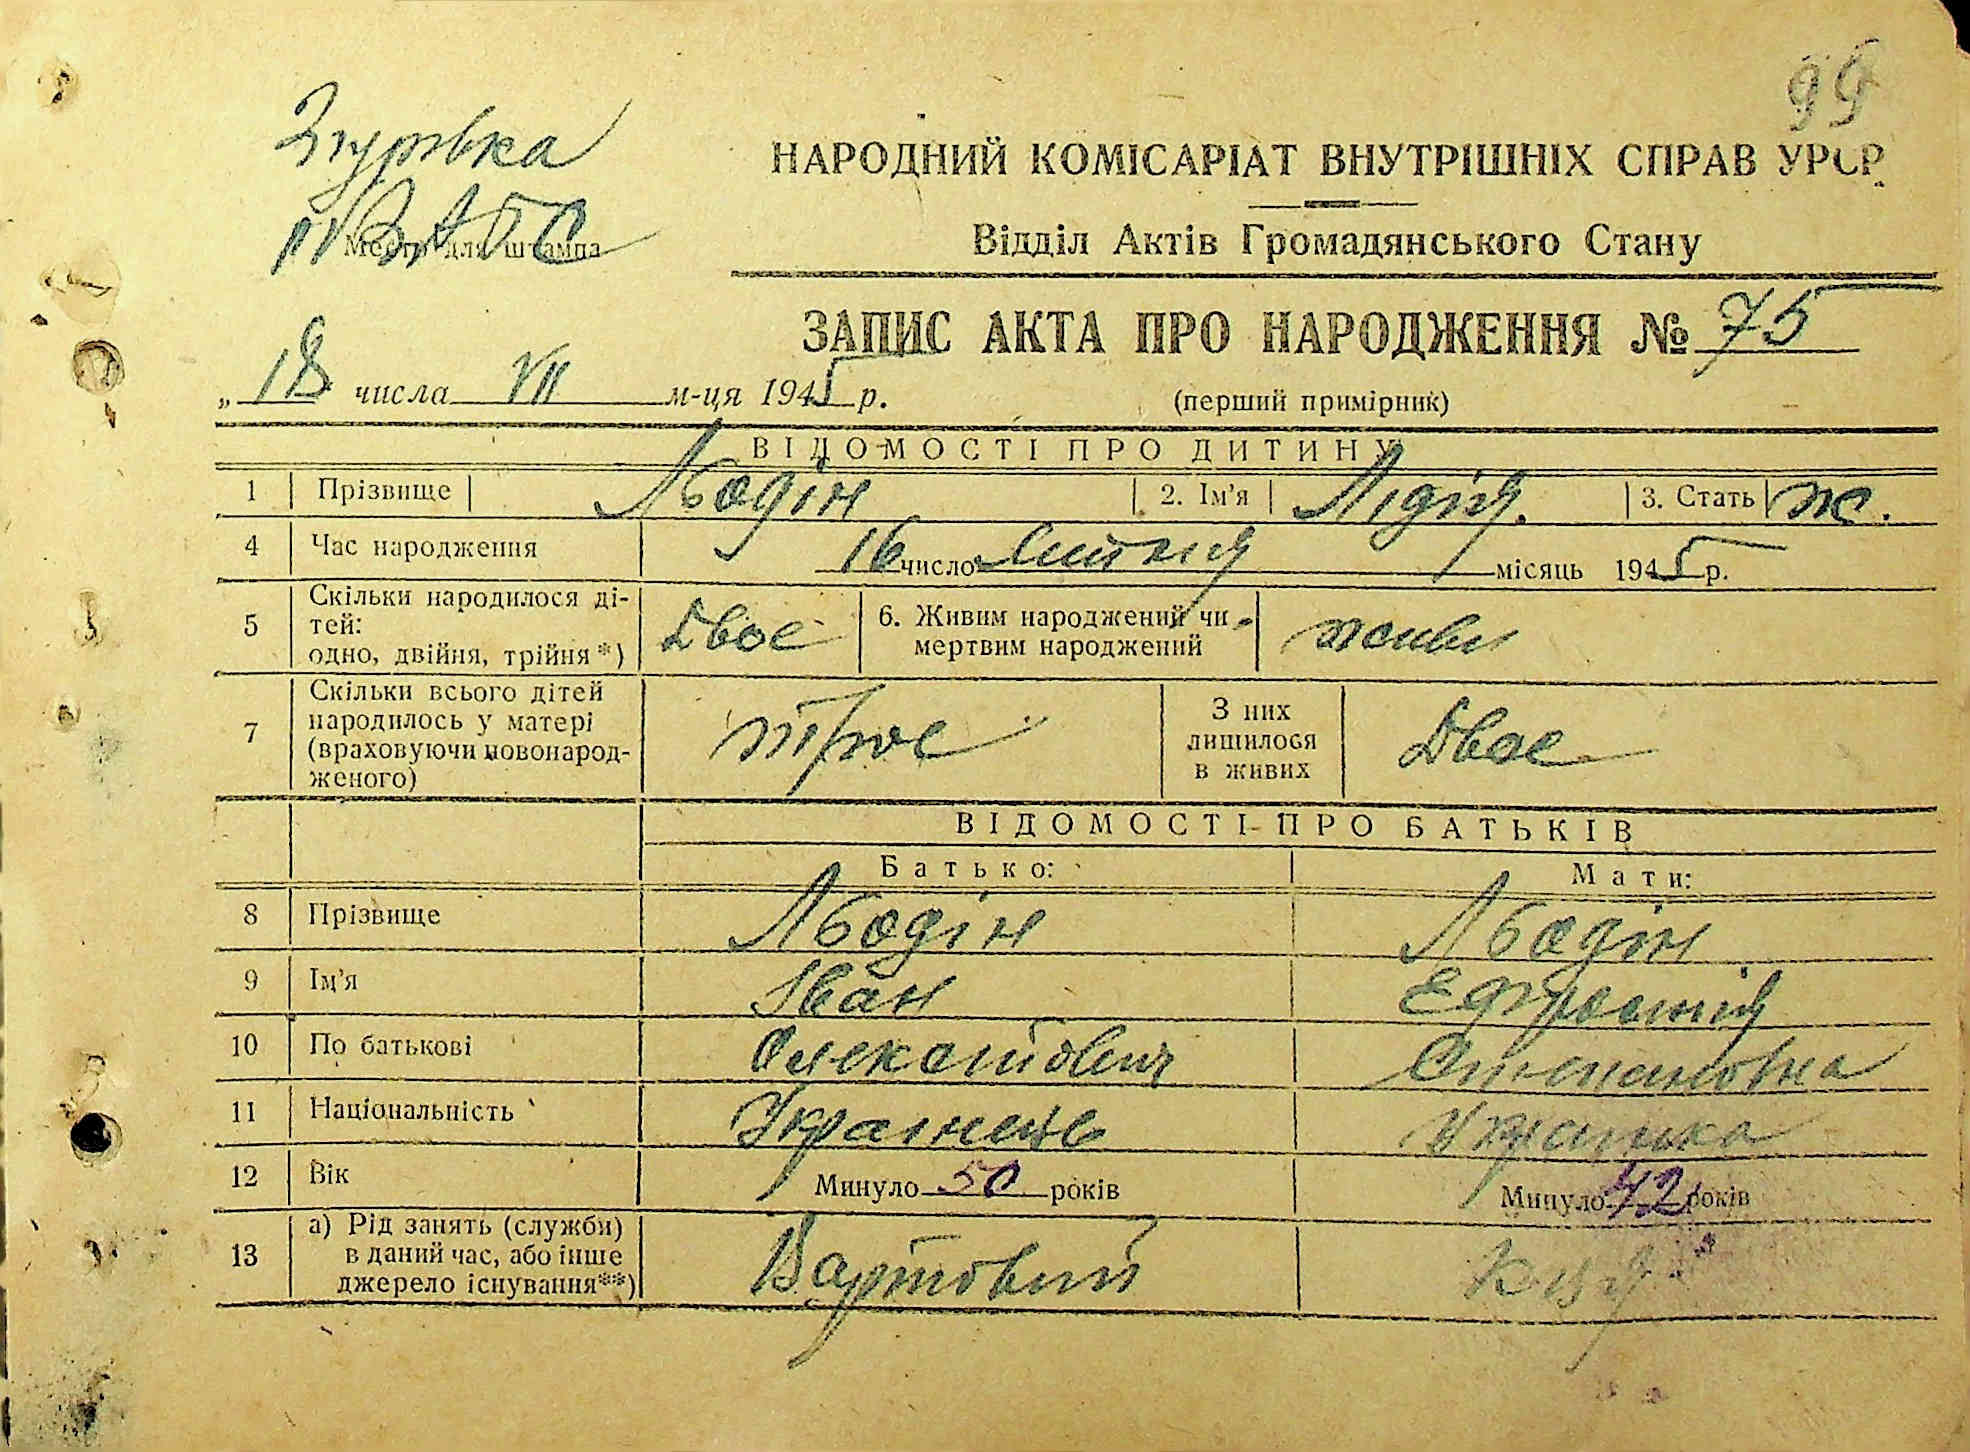 99
Згурівка
р. ЗАГС
Место для штампа
НАРОДНИЙ КОМІСАРІАТ ВНУТРІШНІХ СПРАВ УРСР
Відділ Актів Громадянського Стану
ЗАПИС АКТА ПРО НАРОДЖЕННЯ № 75
„ 18 числа VII м-ця 1945 р.
(перший примірник)
ВІДОМОСТІ ПРО ДИТИНУ
1 Прізвище Льодін 2. Ім'я Лідія. 3. Стать ж.
4 Час народження 16 число Липня місяць 1945 р.
5 Скільки народилося ді-
тей:
одно, двійня, трійня*) Двоє 6. Живим народжений чи
мертвим народжений живи
7 Скільки всього дітей
народилось у матері
(враховуючи новонарод-
женого) троє З них
лишилося
в живих Двоє
ВІДОМОСТІ ПРО БАТЬКІВ
Батько: Мати:
8 Прізвище Льодін Льодін
9 Ім'я Іван Ефросинія
10 По батькові Степановна
11 Національність Українець Українка
12 Вік Минуло 50 років Минуло 42 років
13 а) Рід занять (служби)
в даний час, або інше
джерело існування**) Вартовий